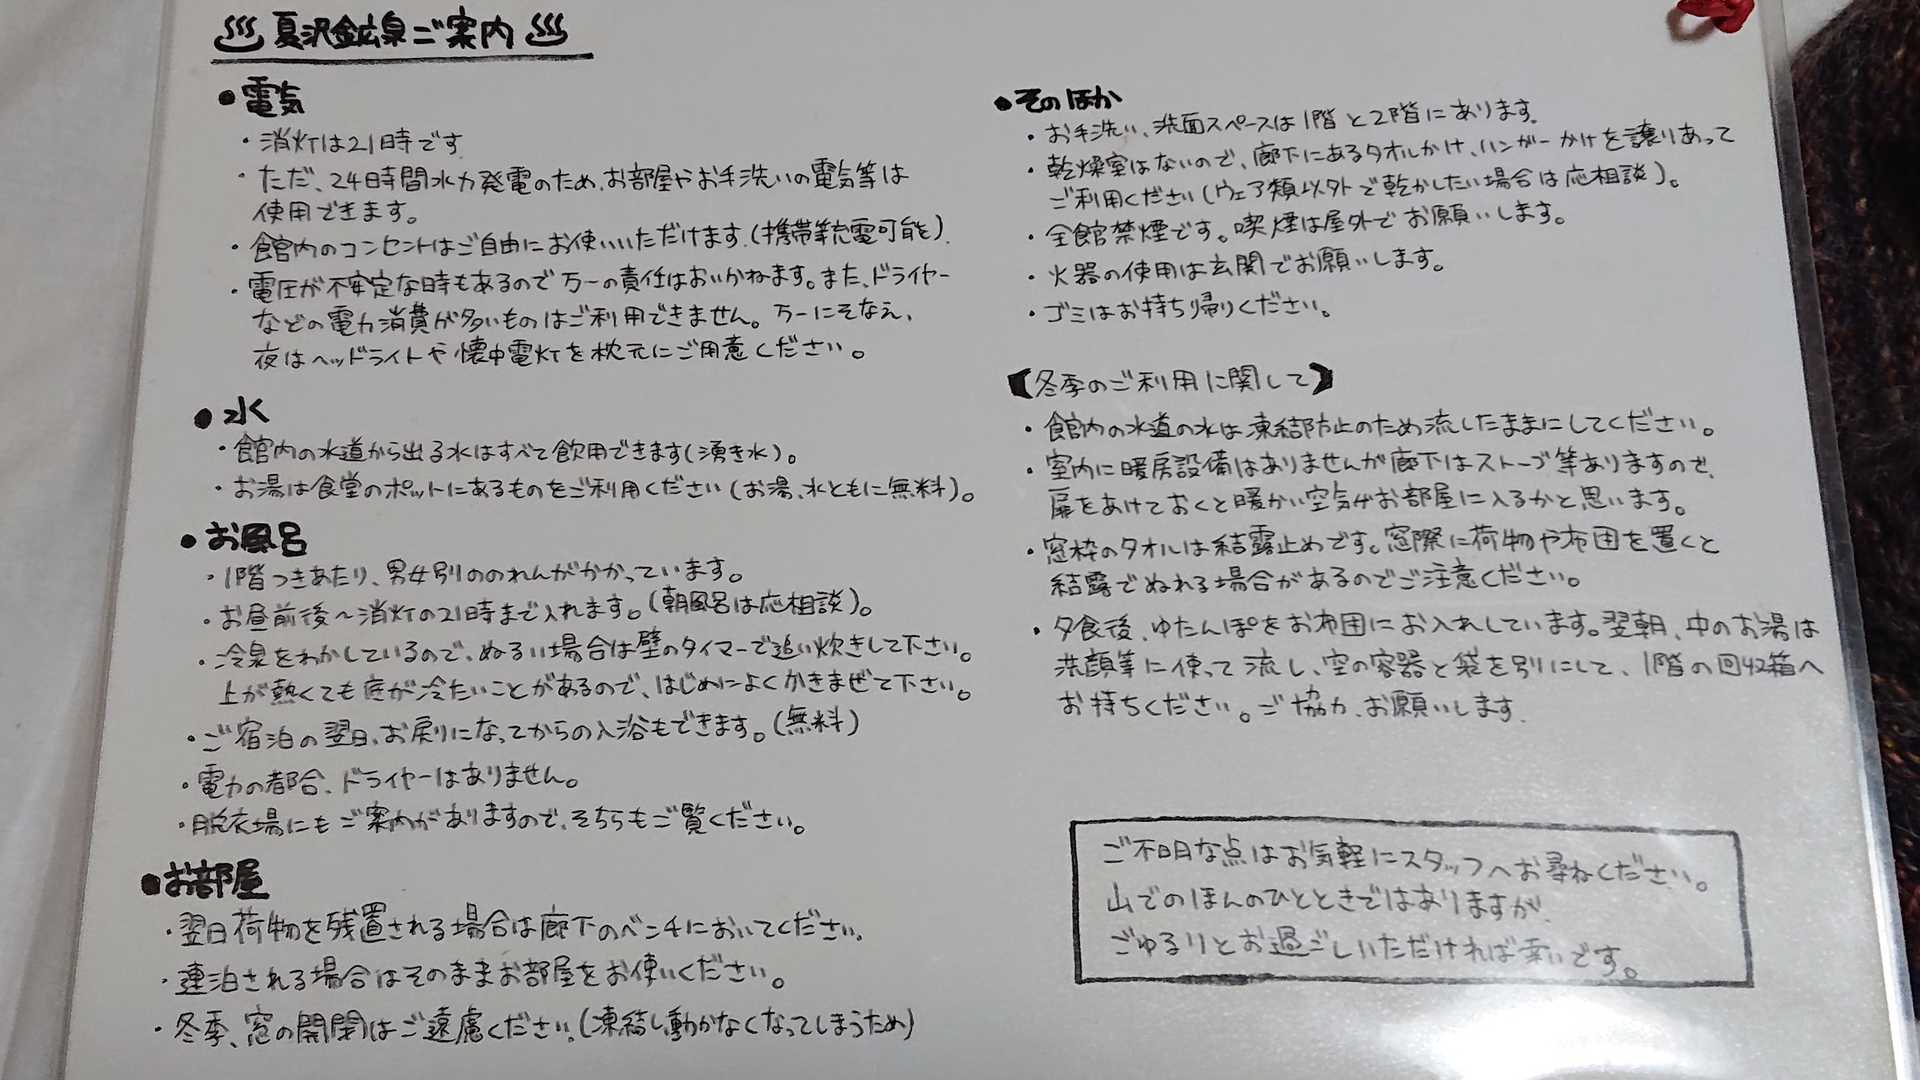 ♨夏沢鉱泉ご案内♨
●電気
・消灯は21時です
・ただ、24時間水力発電のため、お部屋やお手洗いの電気等は
使用できます。
・館内のコンセントはご自由にお使いいただけます.(携帯等充電可能).
・電圧が不安定な時もあるので万一の責任はおいかねます。また、ドライヤー
などの電力消費が多いものはご利用できません。万一にそなえ、
夜はヘッドライトや懐中電灯を枕元にご用意ください。
●水
・館内の水道から出る水はすべて飲用できます(湧き水)。
・お湯は食堂のポットにあるものをご利用ください(お湯、水ともに無料)。
●お風呂
・1階つきあたり、男女別ののれんがかかっています。
・お昼前後～消灯の21時まで入れます。(朝風呂は応相談)。
・冷泉をわかしているので、ぬるい場合は壁のタイマーで追い炊きして下さい。
上が熱くても底が冷たいことがあるので、はじめによくかきまぜて下さい。
・ご宿泊の翌日、お戻りになってからの入浴もできます。(無料)
・電力の都合、ドライヤーはありません。
・脱衣場にもご案内がありますので、そちらもご覧ください。
●お部屋
・翌日荷物を残置される場合は廊下のベンチにおいてください.
・連泊される場合はそのままお部屋をお使いください。
・冬季、窓の開閉はご遠慮ください.(凍結し動かなくなってしまうため)
●そのほか
・お手洗い、洗面スペースは1階と2階にあります.
・乾燥室はないので、廊下にあるタオルかけ、ハンガーかけを譲りあって
ご利用ください(ウェア類以外で乾かしたい場合は応相談)。
・全館禁煙です。喫煙は屋外でお願いします。
・火器の使用は玄関でお願いします。
・ゴミはお持ち帰りください。
【冬季のご利用に関して】
・館内の水道の水は凍結防止のため流したままにしてください。
・室内に暖房設備はありませんが廊下はストーブ等ありますので、
扉をあけておくと暖かい空気がお部屋に入るかと思います。
・窓枠のタオルは結露止めです。窓際に荷物や布団を置くと
結露でぬれる場合があるのでご注意ください。
・夕食後、ゆたんぽをお布団にお入れしています。翌朝、中のお湯は
洗顔等に使って流し、空の容器と袋を別にして、1階の回収箱へ
お持ちください。ご協力、お願いします.
ご不明な点はお気軽にスタッフへお尋ねください。
山でのほんのひとときではありますが、
ごゆるりとお過ごしいただければ幸いです。